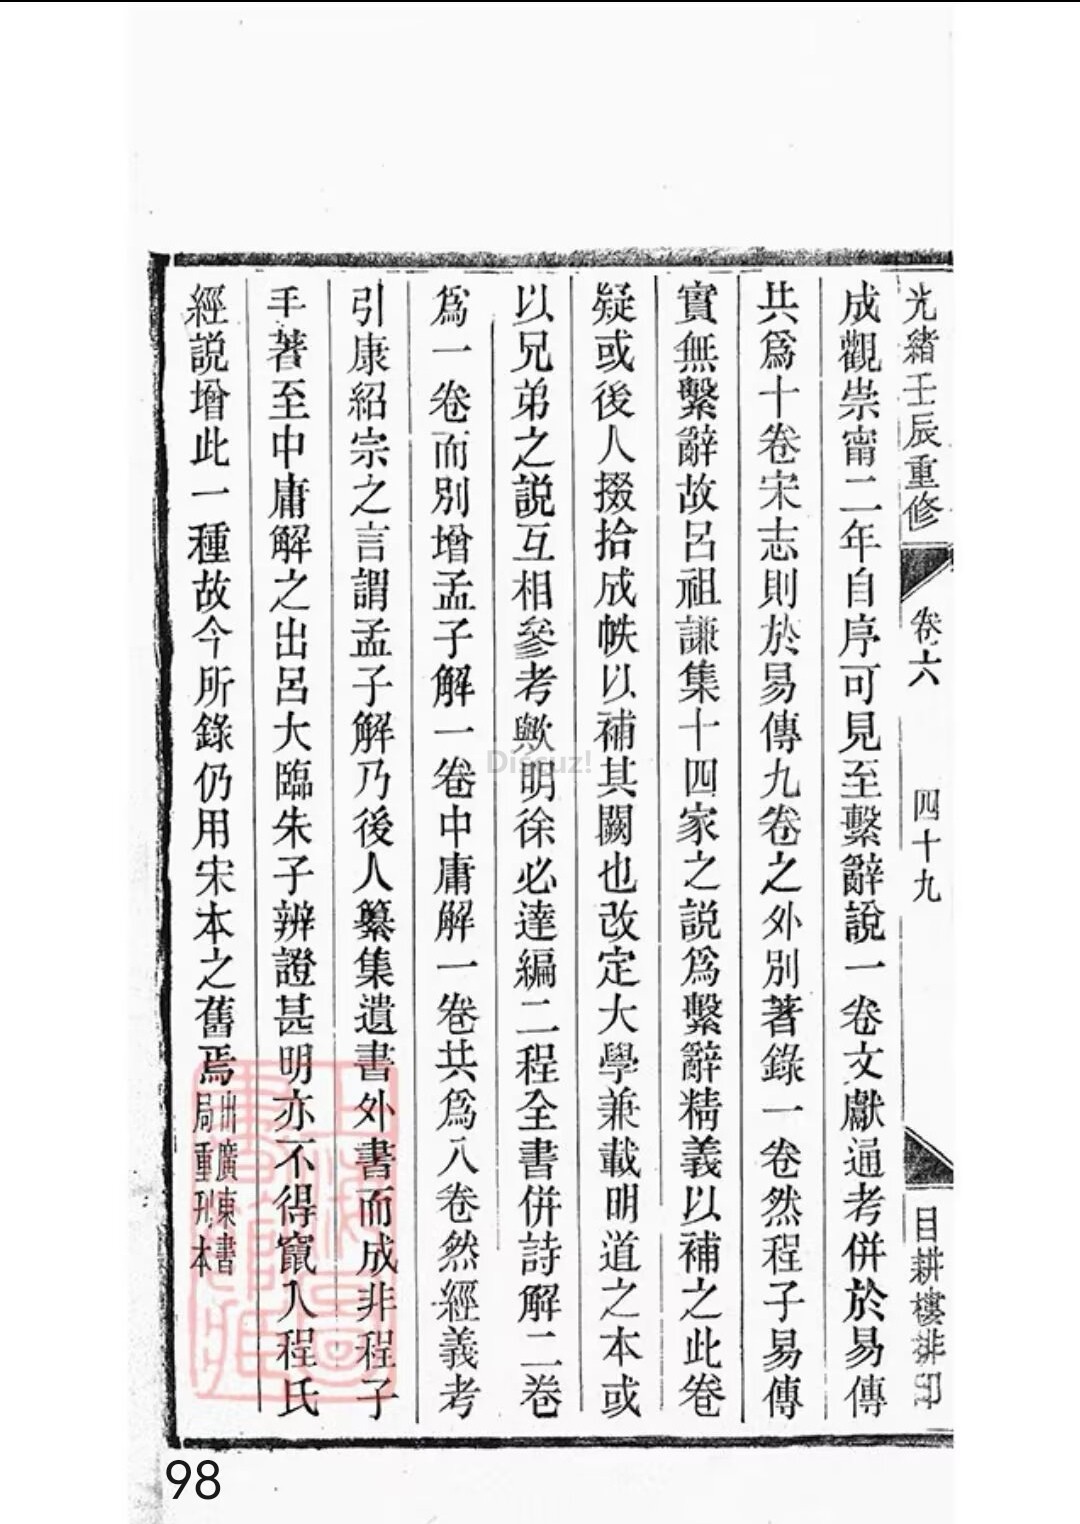 光緒壬辰重修
卷六
四十九
目耕樓排印
成觀崇甯二年自序可見至繫辭說一卷文獻通考併於易傳
共爲十卷宋志則於易傳九卷之外別著錄一卷然程子易傳
實無繫辭故呂祖謙集十四家之說爲繫辭精義以補之此卷
疑或後人掇拾成帙以補其闕也改定大學兼載明道之本或
以兄弟之說互相參考歟明徐必達編二程全書併詩解二卷
爲一卷而別增孟子解一卷中庸解一卷共爲八卷然經義考
引康紹宗之言謂孟子解乃後人纂集遺書外書而成非程子
手著至中庸解之出呂大臨朱子辨證甚明亦不得竄入程氏
經說增此一種故今所錄仍用宋本之舊焉出廣東書
局重刊本
Discuz!
98